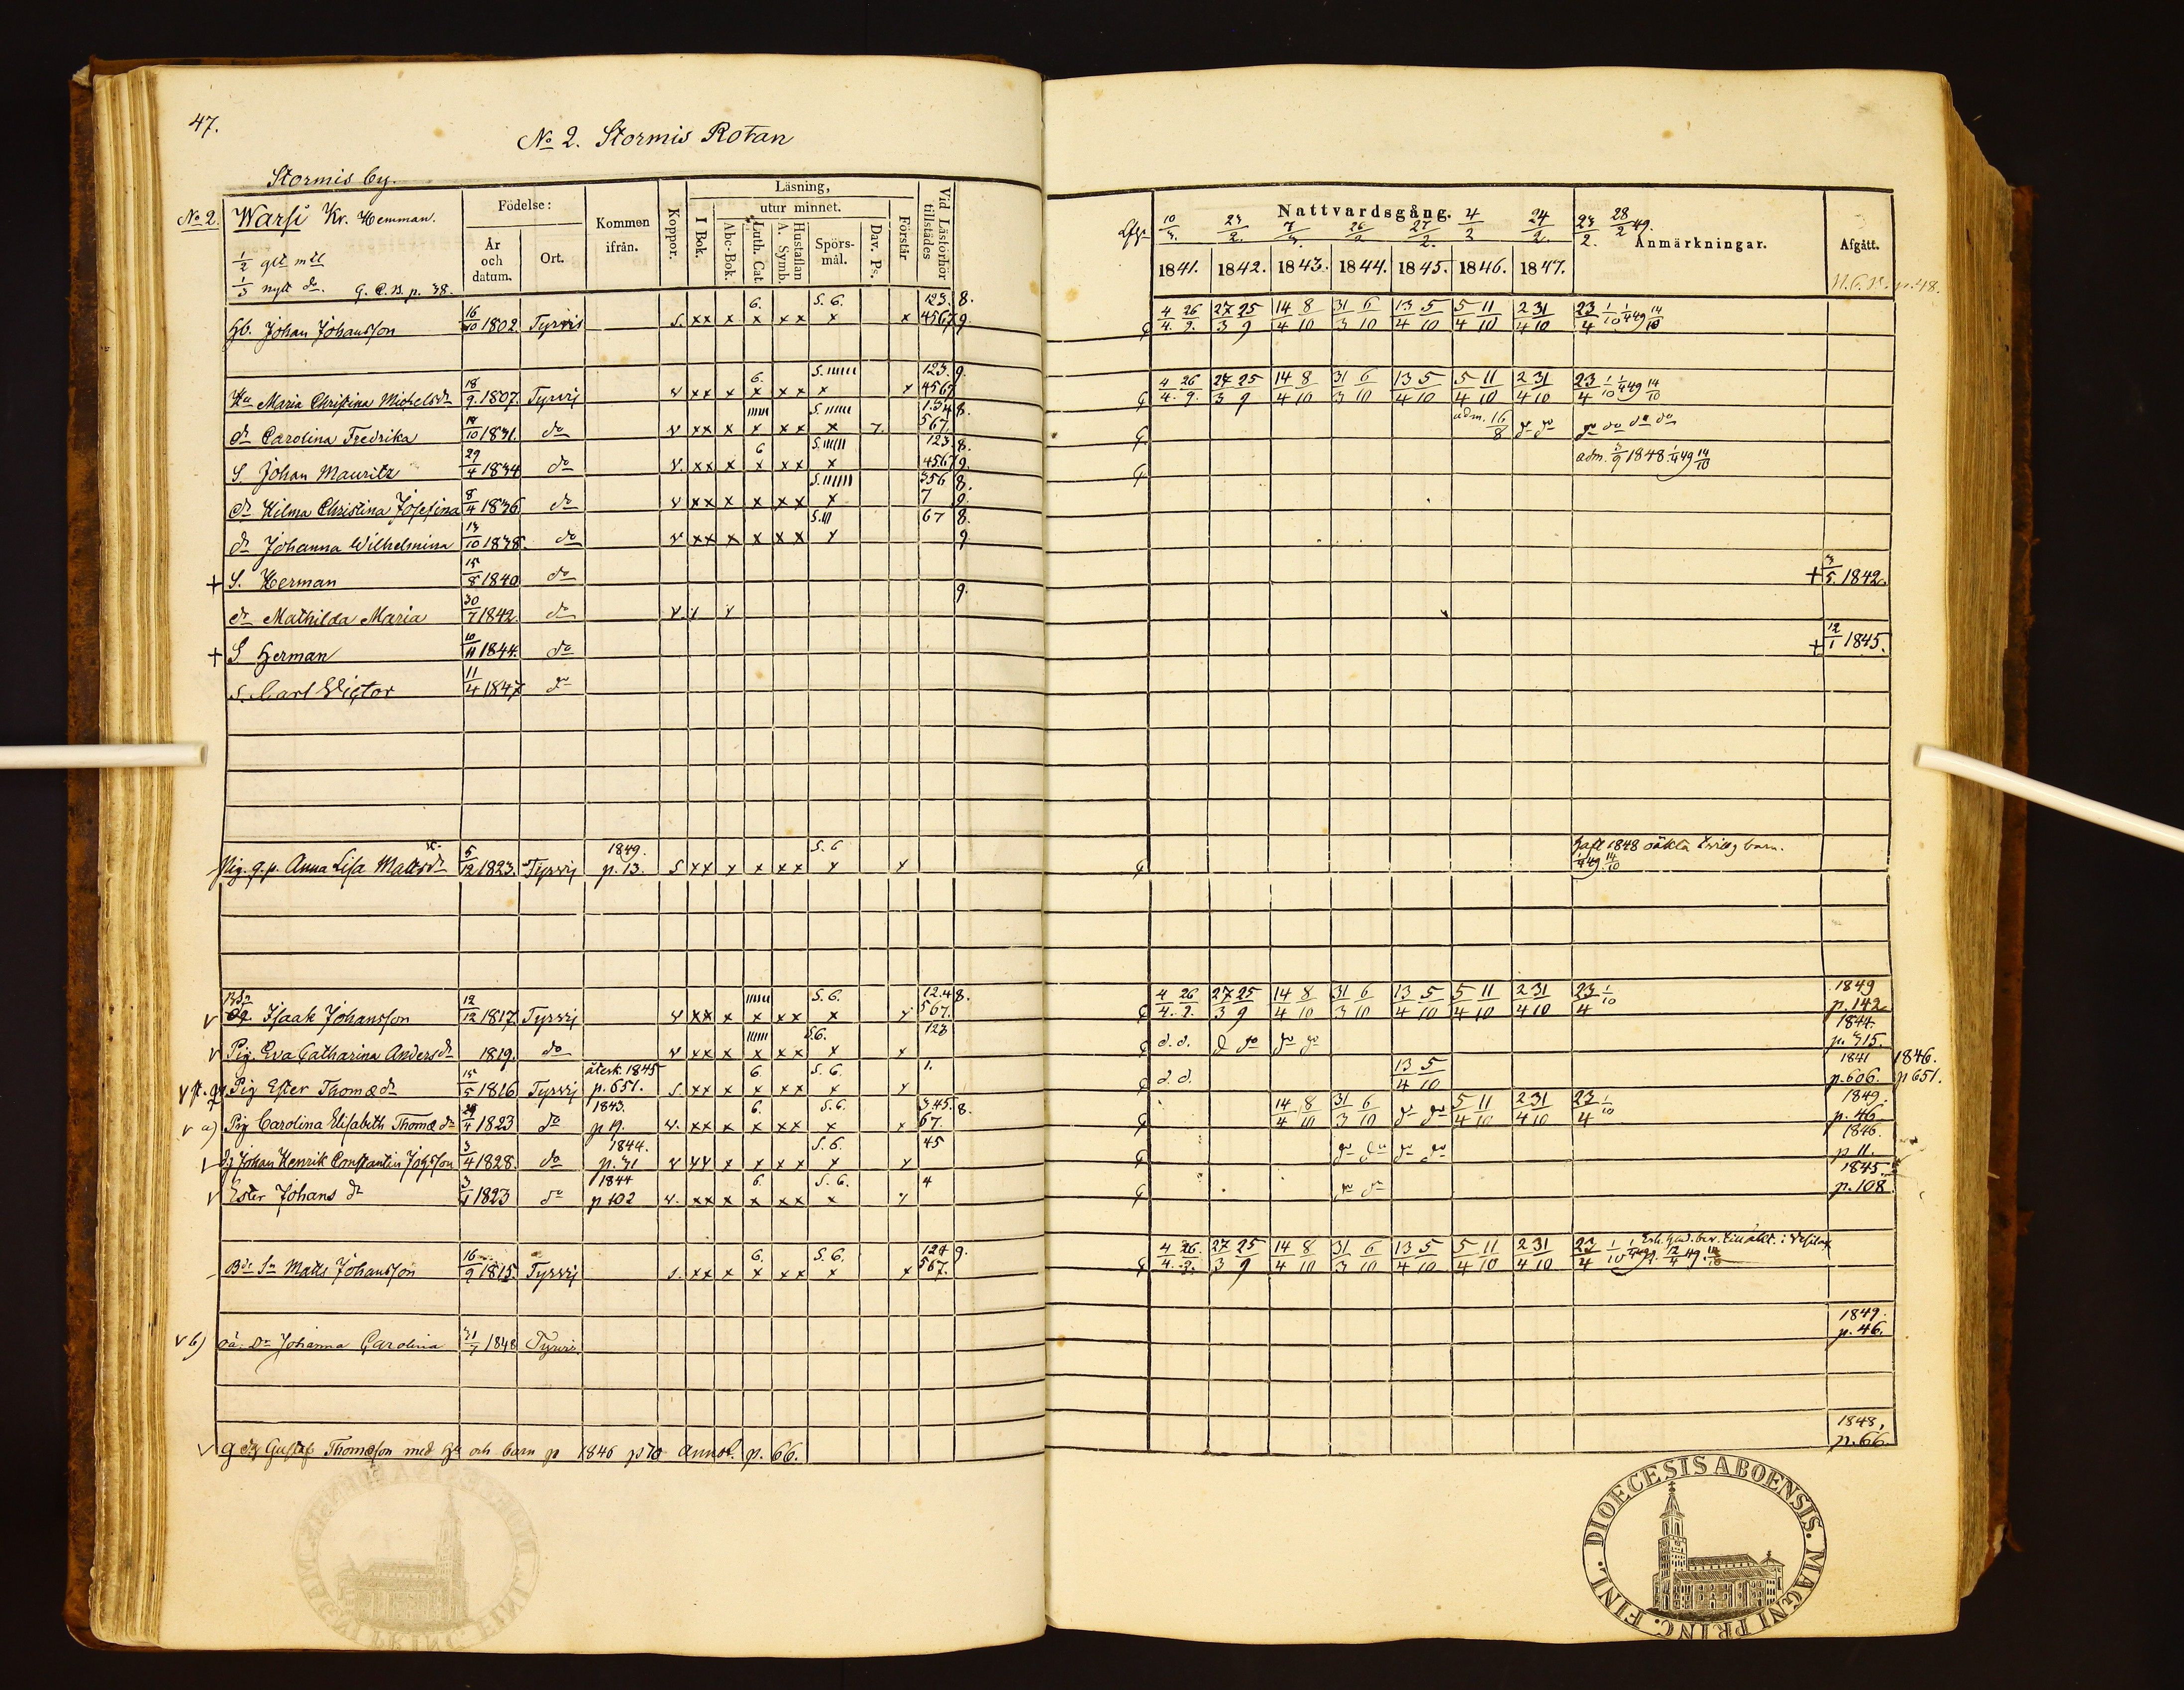 47.
No 2. Stormis Rotan
Stormis by.
No 2. Warsi Kr. Hemman.
1/2 glt mtl
1/3 nytt do. G. C. B. p. 38.
Födelse:
År och datum.
Ort.
Kommen ifrån.
Koppor.
Läsning,
I Bok.
utur minnet.
Abc-Bok.
Luth. Cat.
Hustaflan A. Symb.
Spörs-mål.
Dav. Ps.
Förstår
Vid Läsförhör tillstädes
Nattvardsgång.
10/3. 23/2. 7/3. 26/2 27/2. 4/2 24/2. 23/2. 28/2 49.
1841. 1842. 1843. 1844. 1845. 1846. 1847.
Anmärkningar.
Afgått.
N. C. B. p. 48.
Hb. Johan Johansson 16/10 1802 Tyrvis S. xx x 6. x xx S. 6. x x 123. 4567 8. 9. 4/4. 26/9. 27/3 25/9 14/4 8/10 31/3 6/10 13/4 5/10 5/4 11/10 2/4 31/10 23/4 1/10 1/4 49 14/10
Hu Maria Christina Michelsdr 18/9. 1807. Tyrvis v xx x 6. x xx S. x x 123. 4567 9. 4/4. 26/9. 27/3 25/9 14/4 8/10 31/3 6/10 13/4 5/10 5/4 11/10 2/4 31/10 23/4 1/10 1/4 49 14/10
dr Carolina Fredrika 10 1831. do v xx x x xx S. x 7. 134 567. 8. adm. 16/8 do do do do do do
S. Johan Mauritz 29/4 1834 do v. xx x 6 x xx S. x 123. 4567 8. 9. adm. 3/9 1848. 1/4 49 14/10
dr Hilma Christina Josefina 8/4 1836 do v xx x x xx S. x 356 7 8. 9.
dr Johanna Wilhelmina 13/10 1838. do v xx x x xx S. x 67 8. 9
+ S. Herman 15/8 1840 do + 3/5. 1842.
dr Mathilda Maria 30/7 1842. do v. x x 9.
+ S Herman 10/11 1844. do + 12/1 1845.
S. Carl Victor 11/4 1847 do
Pig. g. p. Anna Lisa Mattsdr 5/12 1823. Tyrvis 1849. p. 13. S xx x x xx S. 6 x x haft 1848 oäkta barn. 1/4 49 14/10
v Bsn Dg Isaak Johansson 12/12 1817 Tyrvis v xx x x xx S. 6. x x 12.4 567. 8. 4/4. 26/9. 27/3 25/9 14/4 8/10 31/3 6/10 13/4 5/10 5/4 11/10 2/4 31/10 23/4 1/10 1849 p. 142
v Pig. Eva Catharina Andersdr 1819. do v xx x x xx S. 6. x x 123 d. d. d do do do 1844. p. 315.
Pig Ester Thomædr 15/5 1816 Tyrvis återk. 1845 p. 651. S. xx x 6. x xx S. 6. x x 1. d. d. 13/4 5/10 1841 p. 606. 1846. p 651.
v a) Pig Carolina Elisabeth Thomædr 29/4 1823 do 1843. p 19. v. xx x 6. x xx S. 6. x x 345. 67. 8. 14/4 8/10 31/3 6/10 do do 5/4 11/10 2/4 31/10 23/4 1/10 1849. p. 46
Dg Johan Henrik Constantin 3/4 1828. do 1844. p. 31 v xx x x xx S. 6. x x 45 do do do do 1846. p 11.
v Ester Johansdr 3/4 1823 do 1844 p 102 v. xx x 6. x xx S. 6. x x 4 do do 1845. p. 108
Bds Sn Matts Johansson 16/9 1815. Tyrvis S. xx x 6. x xx S. 6. x x 124 567. 9. 4/4. 26/9. 27/3 25/9 14/4 8/10 31/3 6/10 13/4 5/10 5/4 11/10 2/4 31/10 23/4 1/10
v b) oä. Dr Johanna Carolina 31/7 1848 Tyrvis 1849. p. 46.
v g dg Gustaf Thomæson med Hu och barn p 1846 p 70 annot. p. 66. 1848, p. 66.
DIOECESIS ABOENSIS. MAGNI PRINC. FINL.